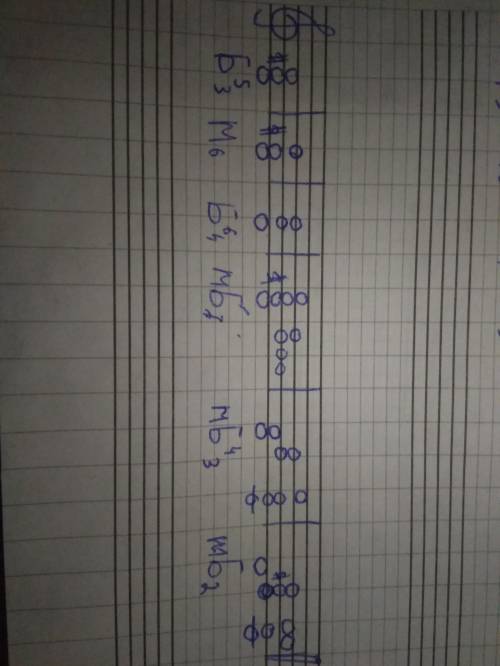 Б5/3 М6 Б6/4 Мб7 Мб4/3 Мб2